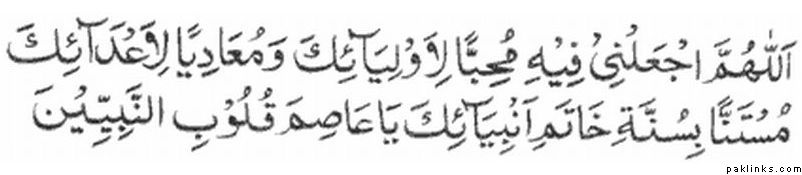 اَللّٰهُمَّ اجْعَلْنِيْ فِيْهِ مُحِبًّا لِاَوْلِيَآئِكَ وَمُعَادِيًا لِاَعْدَآئِكَ
مُسْتَنًّا بِسُنَّةِ خَاتَمِ اَنْبِيَآئِكَ يَا عَاصِمَ قُلُوْبِ النَّبِيِّيْنَ
paklinks.com